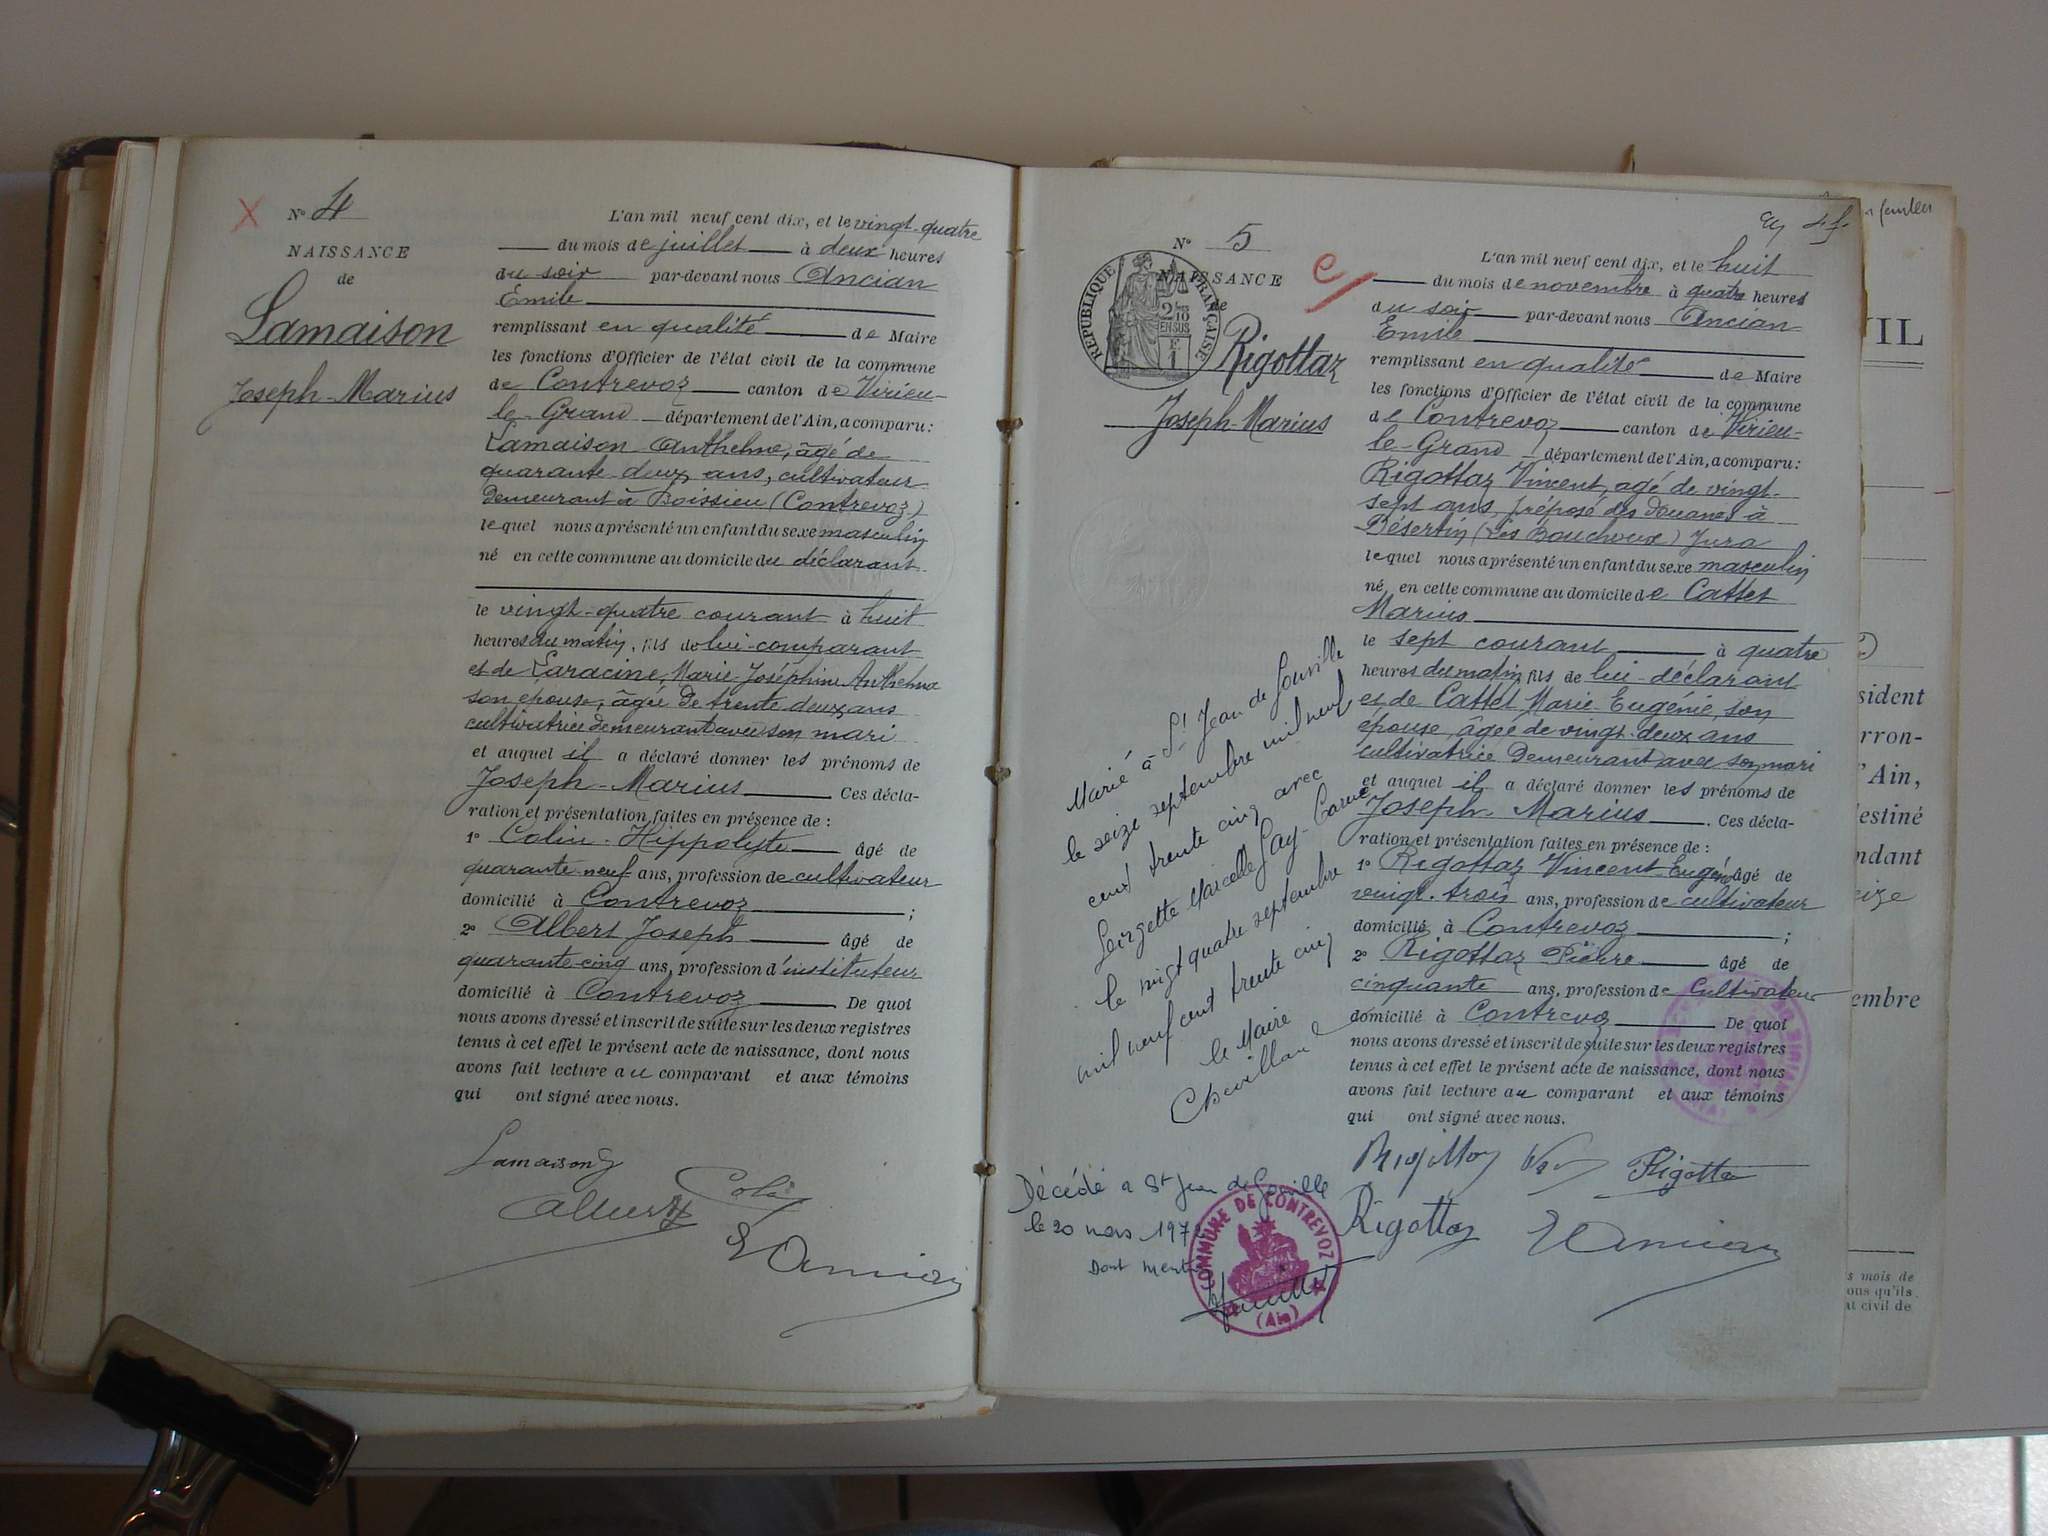 N° 4
NAISSANCE
de
Lamaison
Joseph-Marius
L'an mil neuf cent dix, et le vingt-quatre
du mois de juillet à deux heures
du soir par-devant nous Ancian
Emile
remplissant en qualité de Maire
les fonctions d'Officier de l'état civil de la commune
de Contrevoz canton de Virieu-
le-Grand département de l'Ain, a comparu:
Lamaison Anthelme, âgé de
quarante-deux ans, cultivateur
demeurant à Boissieu (Contrevoz)
lequel nous a présenté un enfant du sexe masculin
né en cette commune au domicile du déclarant
le vingt-quatre courant à huit
heures du matin, fils de lui-comparant
et de Laracine, Marie Joséphine Anthelme
son épouse, âgée de trente deux ans
cultivatrice demeurant avec son mari
et auquel il a déclaré donner les prénoms de
Joseph-Marius Ces décla-
ration et présentation faites en présence de :
1° Colin Hippolyte âgé de
quarante-neuf ans, profession de cultivateur
domicilié à Contrevoz ;
2° Albert Joseph âgé de
quarante-cinq ans, profession d'instituteur
domicilié à Contrevoz De quoi
nous avons dressé et inscrit de suite sur les deux registres
tenus à cet effet le présent acte de naissance, dont nous
avons fait lecture au comparant et aux témoins
qui ont signé avec nous.
Lamaison
Albert Colin
E Ancian
N° 5
NAISSANCE
de
REPUBLIQUE FRANÇAISE
2/10 EN SUS
F. 1
Rigottaz
Joseph-Marius
L'an mil neuf cent dix, et le huit
du mois de novembre à quatre heures
du soir par-devant nous Ancian
Emile
remplissant en qualité de Maire
les fonctions d'Officier de l'état civil de la commune
de Contrevoz canton de Virieu-
le-Grand département de l'Ain, a comparu:
Rigottaz Vincent, agé de vingt-
sept ans, préposé des douanes à
Désertin (Les Bouchoux) Jura
lequel nous a présenté un enfant du sexe masculin
né en cette commune au domicile de Cattet
Marius
le sept courant à quatre
heures du matin fils de lui-déclarant
et de Cattet Marie-Eugénie, son
épouse, âgée de vingt-deux ans
cultivatrice demeurant avec son mari
et auquel il a déclaré donner les prénoms de
Joseph-Marius. Ces décla-
ration et présentation faites en présence de :
1° Rigottaz Vincent Eugène âgé de
vingt-trois ans, profession de cultivateur
domicilié à Contrevoz ;
2° Rigottaz Pierre âgé de
cinquante ans, profession de cultivateur
domicilié à Contrevoz De quoi
nous avons dressé et inscrit de suite sur les deux registres
tenus à cet effet le présent acte de naissance, dont nous
avons fait lecture au comparant et aux témoins
qui ont signé avec nous.
Rigottaz
Rigottaz E Ancian
Marié à St Jean de Gonville
le seize septembre mil neuf
cent trente cinq avec
Georgette Marcelle Gay-
le vingt quatre septembre
mil neuf cent trente cinq
le Maire
Chevilland
Décédé à St Jean de Gonville
le 20 mars
Dont mention
COMMUNE DE CONTREVOZ
(Ain)
VIL
sident
rron-
l'Ain,
estiné
ndant
eize
embre
s mois de
ous qu'ils
at civil de